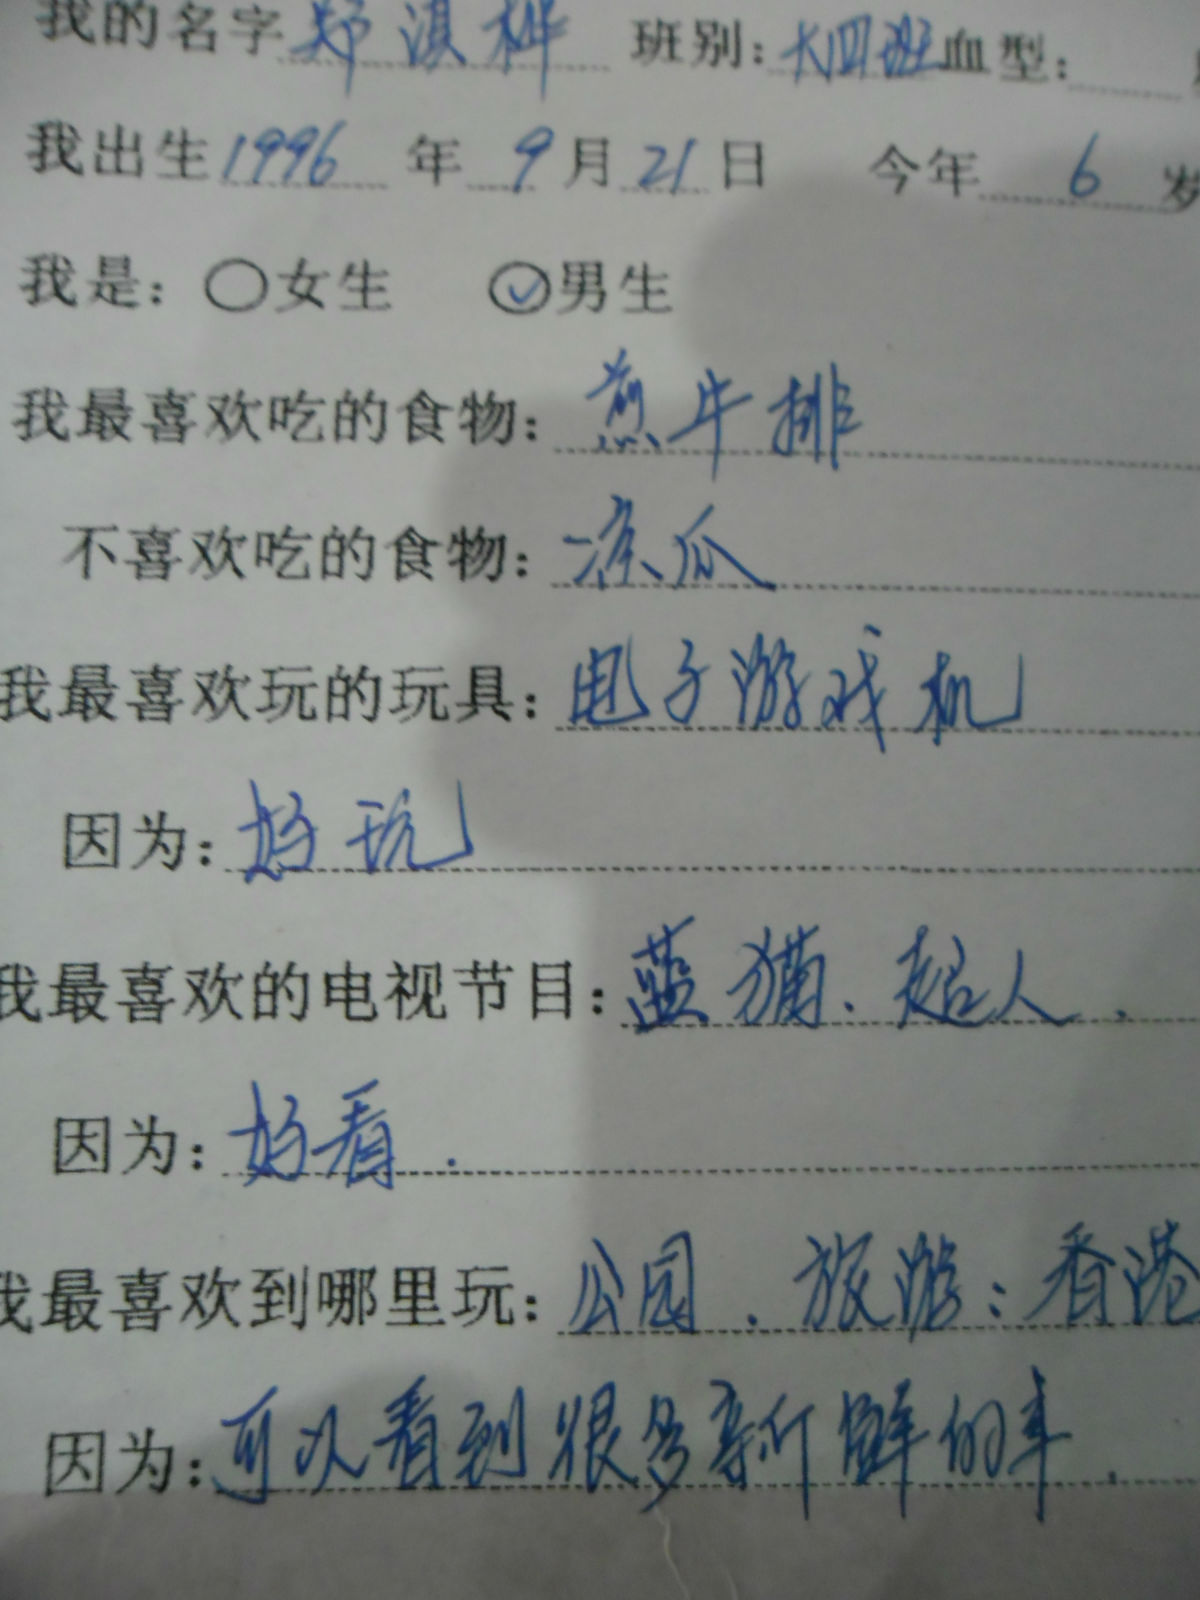 我的名字 郑淇桦 班别: 大四班 血型:
我出生 1996 年 9 月 21 日 今年 6 岁
我是: 女生 男生
我最喜欢吃的食物: 煎牛排
不喜欢吃的食物: 凉瓜
我最喜欢玩的玩具: 电子游戏机
因为: 好玩
我最喜欢的电视节目: 蓝猫、超人.
因为: 好看.
我最喜欢到哪里玩: 公园、旅游:香港
因为: 可以看到很多新鲜的车.